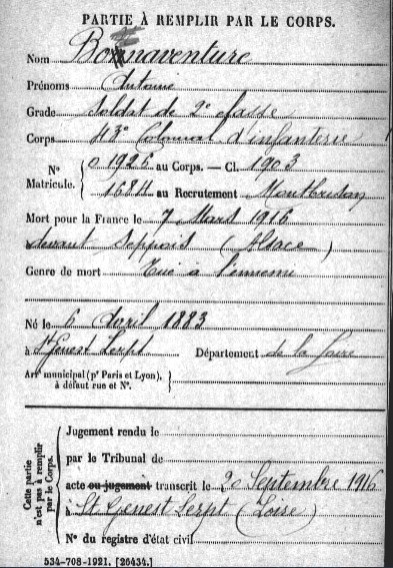 PARTIE À REMPLIR PAR LE CORPS.
Nom Bonnaventure
Prénoms Antoine
Grade Soldat de 2e classe
Corps 43e Colonial d'infanterie
N° Matricule. 01926 au Corps. — Cl. 1903
1684 au Recrutement Montbrison
Mort pour la France le 7 Mars 1916
devant Seppois (Alsace)
Genre de mort Tué à l'ennemi
Né le 6 Avril 1883
à St Genest Lerpt Département de la Loire
Arrt municipal (pr Paris et Lyon),
à défaut rue et N°.
Cette partie n'est pas à remplir par le Corps.
Jugement rendu le
par le Tribunal de
acte ou jugement transcrit le 20 Septembre 1916
à St Genest Lerpt (Loire)
N° du registre d'état civil
534-708-1921. [26434.]